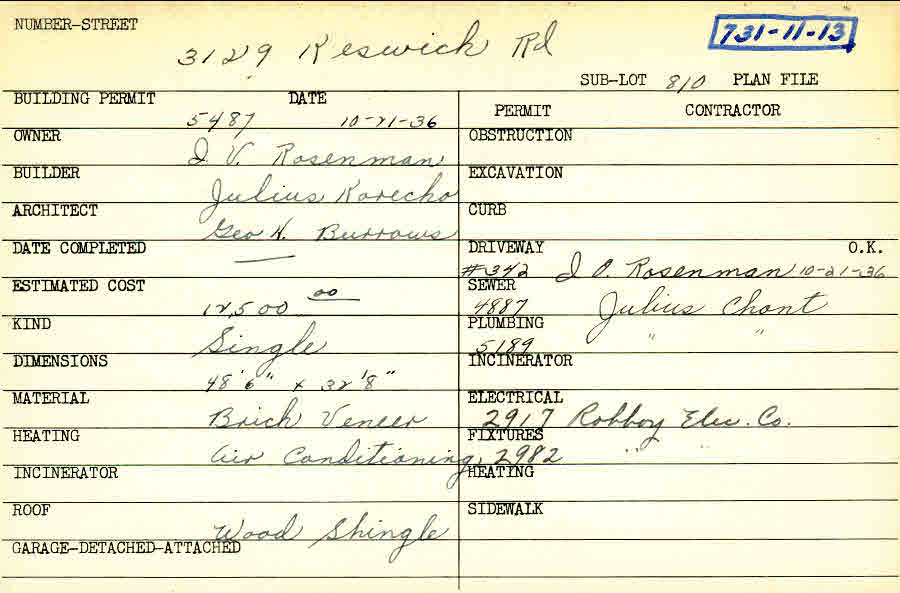 NUMBER-STREET
3129 Keswick Rd
731-11-13
SUB-LOT 810 PLAN FILE
BUILDING PERMIT DATE
5487 10-21-36
PERMIT CONTRACTOR
OWNER
I. V. Rosenman
OBSTRUCTION
BUILDER
Julius
EXCAVATION
ARCHITECT
Geo H. Burrows
CURB
DATE COMPLETED
—
DRIVEWAY O.K.
#342 Rosenman 10-21-36
ESTIMATED COST
12,500 00
SEWER
4887 Julius Chont
KIND
Single
PLUMBING
5189 " "
DIMENSIONS
48'6" x 32'8"
INCINERATOR
MATERIAL
Brick Veneer
ELECTRICAL
2917 Robboy Elec. Co.
HEATING
Air Conditioning
FIXTURES
2982 "
INCINERATOR
HEATING
ROOF
Wood Shingle
SIDEWALK
GARAGE-DETACHED-ATTACHED